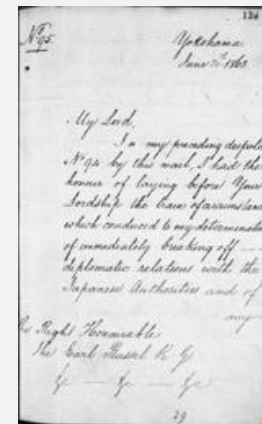 134
No 95.
Yokohama
June 1863
My Lord,
In my preceding despatc
No 94 by this mail, I had the
honor of laying before Your
Lordship the train of circumstanc
which conduced to my determinatio
of immediately breaking off
diplomatic relations with the
Japanese Authorities and of
my
The Right Honourable
The Earl Russel K. G.
&c — &c — &c
29